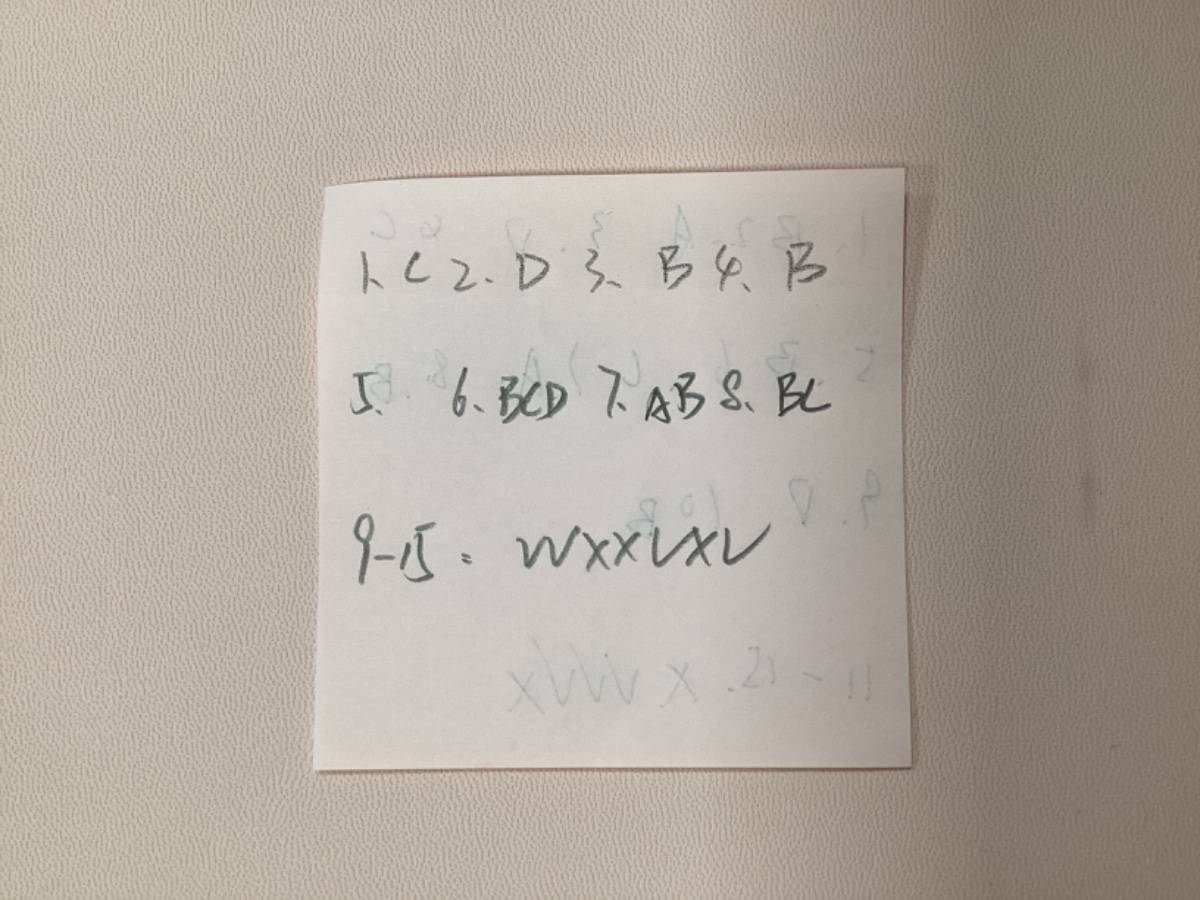 1、C 2、D 3、B 4、B
5、 6、BCD 7、AB 8、BC
9-15: √√××√×√